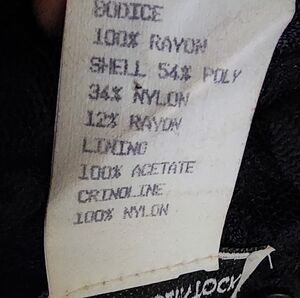 BODICE
100% RAYON
SHELL 54% POLY
34% NYLON
12% RAYON
LINING
100% ACETATE
CRINOLINE
100% NYLON